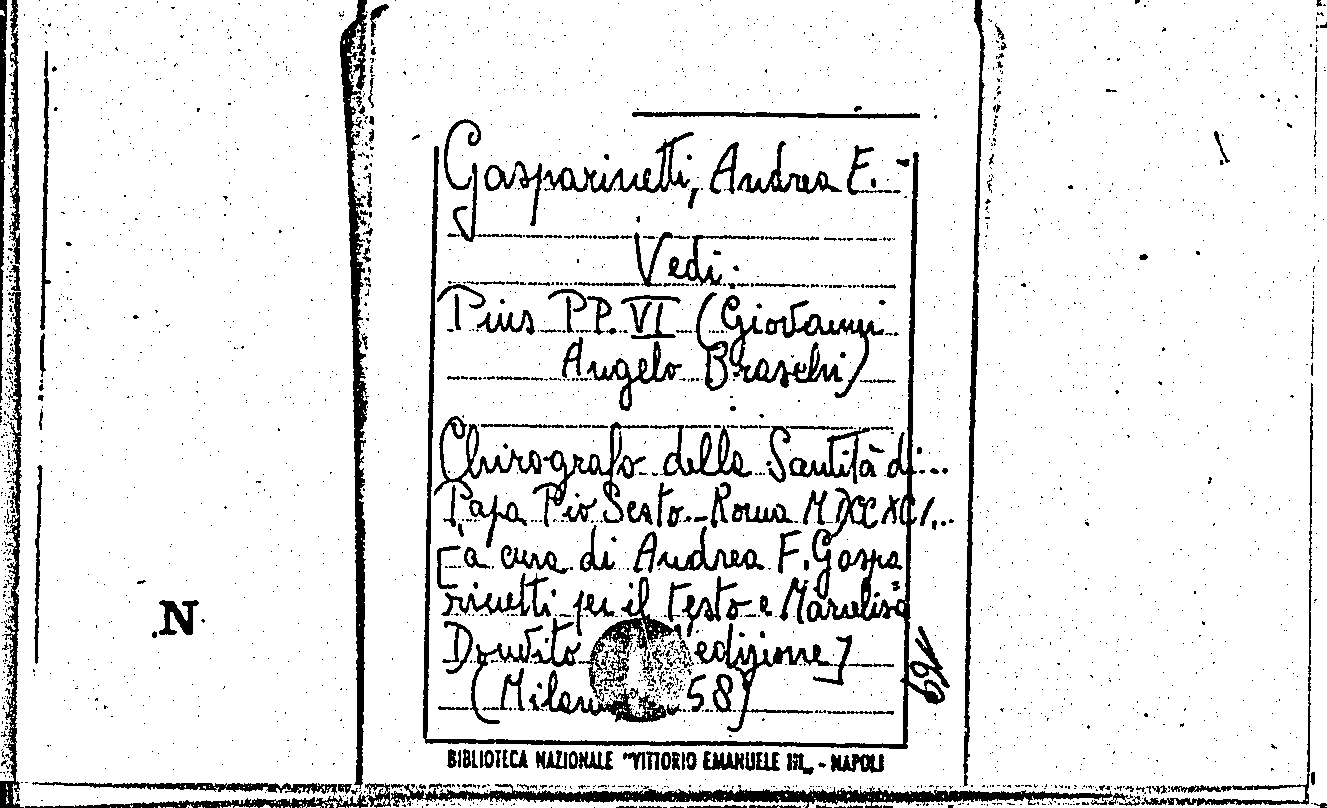 Gasparinetti, Andrea F. -
Vedi:
Pius PP. VI (Giovanni
Angelo Braschi)
Chirografo della Santità di...
Papa Pio Sesto. Roma MDCCXCI...
[a cura di Andrea F. Gaspa
rinetti per il testo e
edizione]
58)
69
N
BIBLIOTECA NAZIONALE "VITTORIO EMANUELE III„ - NAPOLI